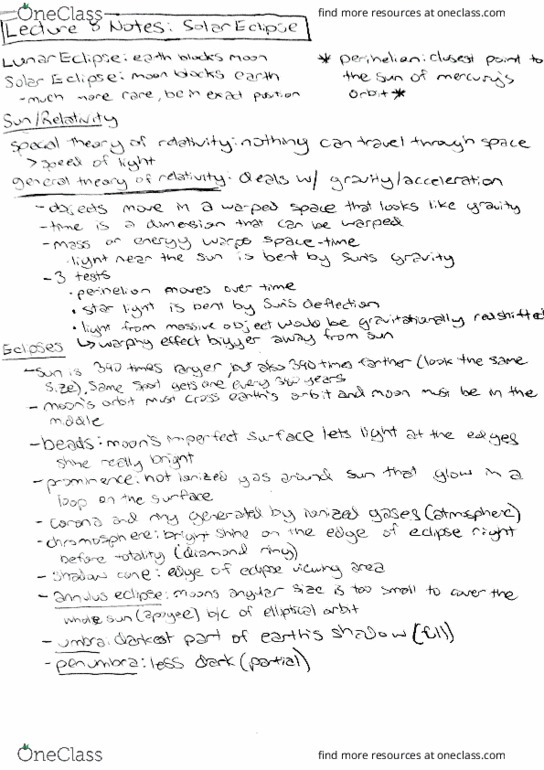 OneClass
find more resources at oneclass.com
Lecture 8 Notes: Solar Eclipse
Lunar Eclipse: earth blocks moon
Solar Eclipse: moon blocks earth
-much more rare, be in exact position
* perihelion: closest point to
the sun of mercury's
orbit *
Sun/Relativity
special theory of relativity: nothing can travel through space
> speed of light
general theory of relativity: deals w/ gravity/acceleration
- objects move in a warped space that looks like gravity
- time is a dimension that can be warped
- mass or energy warps space-time
· light near the sun is bent by sun's gravity
- 3 tests
· perihelion moves over time
· star light is bent by sun's deflection
· light from massive object would be gravitationally redshifted
↳ warping effect bigger away from sun
Eclipses
- sun is 390 times larger, but also 390 times farther (look the same
size), same spot gets one every 360 years
- moon's orbit must cross earth's orbit and moon must be in the
middle
- beads: moon's imperfect surface lets light at the edges
shine really bright
- prominence: hot ionized gas around sun that glow in a
loop on the surface
- corona and ring generated by ionized gases (atmosphere)
- chromosphere: bright shine on the edge of eclipse right
before totality (diamond ring)
- shadow cone: edge of eclipse viewing area
- annulus eclipse: moons angular size is too small to cover the
whole sun (apogee) b/c of elliptical orbit
- umbra: darkest part of earth's shadow (full)
- penumbra: less dark (partial)
OneClass
find more resources at oneclass.com